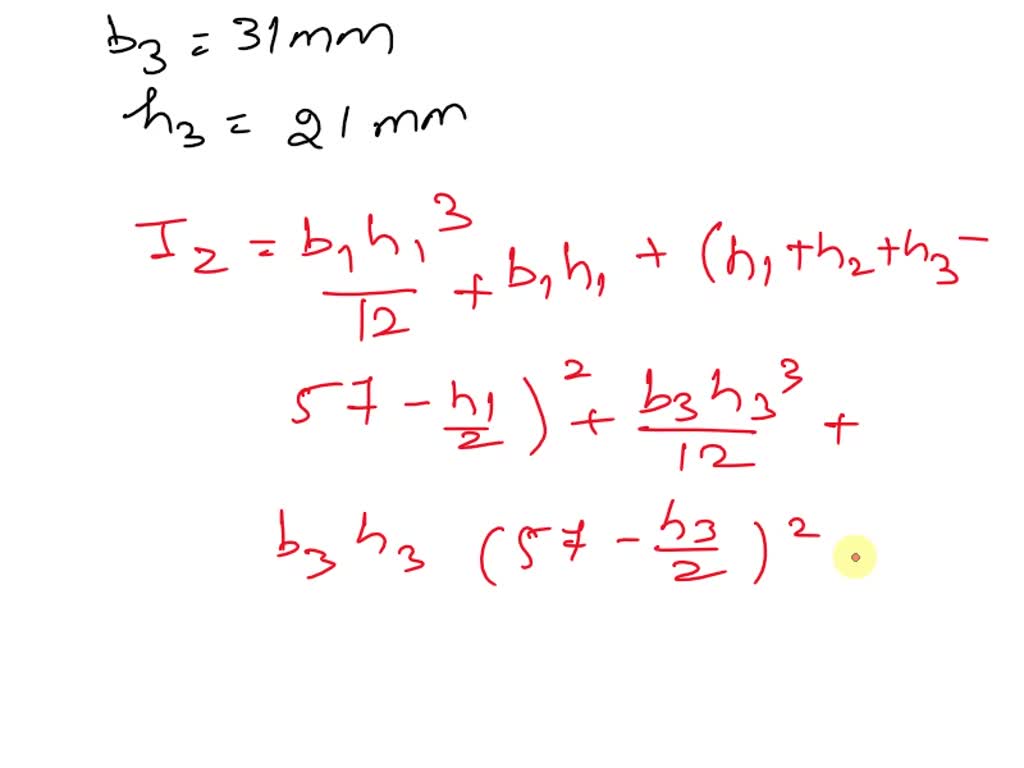 b₃ = 31 mm
h₃ = 21 mm
I₂ = b₁h₁³/12 + b₁h₁ + (h₁ + h₂ + h₃ −
57 − h₁/2)² + b₃h₃³/12 +
b₃ h₃ (57 − h₃/2)²